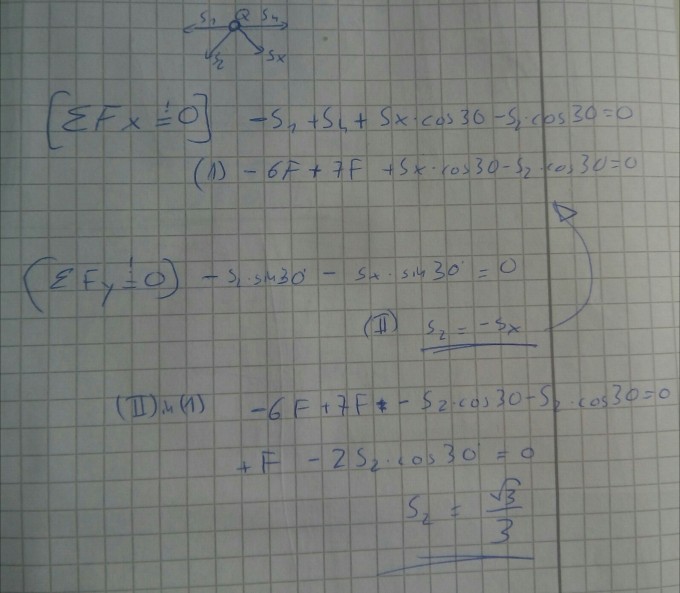 S₁ Q S₄
S₂ Sx
[ΣFx ≟ 0] -S₁ + S₄ + Sx·cos30 - S₂·cos30 = 0
(1) -6F + 7F + Sx·cos30 - S₂·cos30 = 0
(ΣFy ≟ 0) -S₂·sin30 - Sx·sin30 = 0
(II) S₂ = -Sx
(II) in (1) -6F + 7F - S₂·cos30 - S₂·cos30 = 0
+F - 2S₂·cos30 = 0
S₂ = √3/3